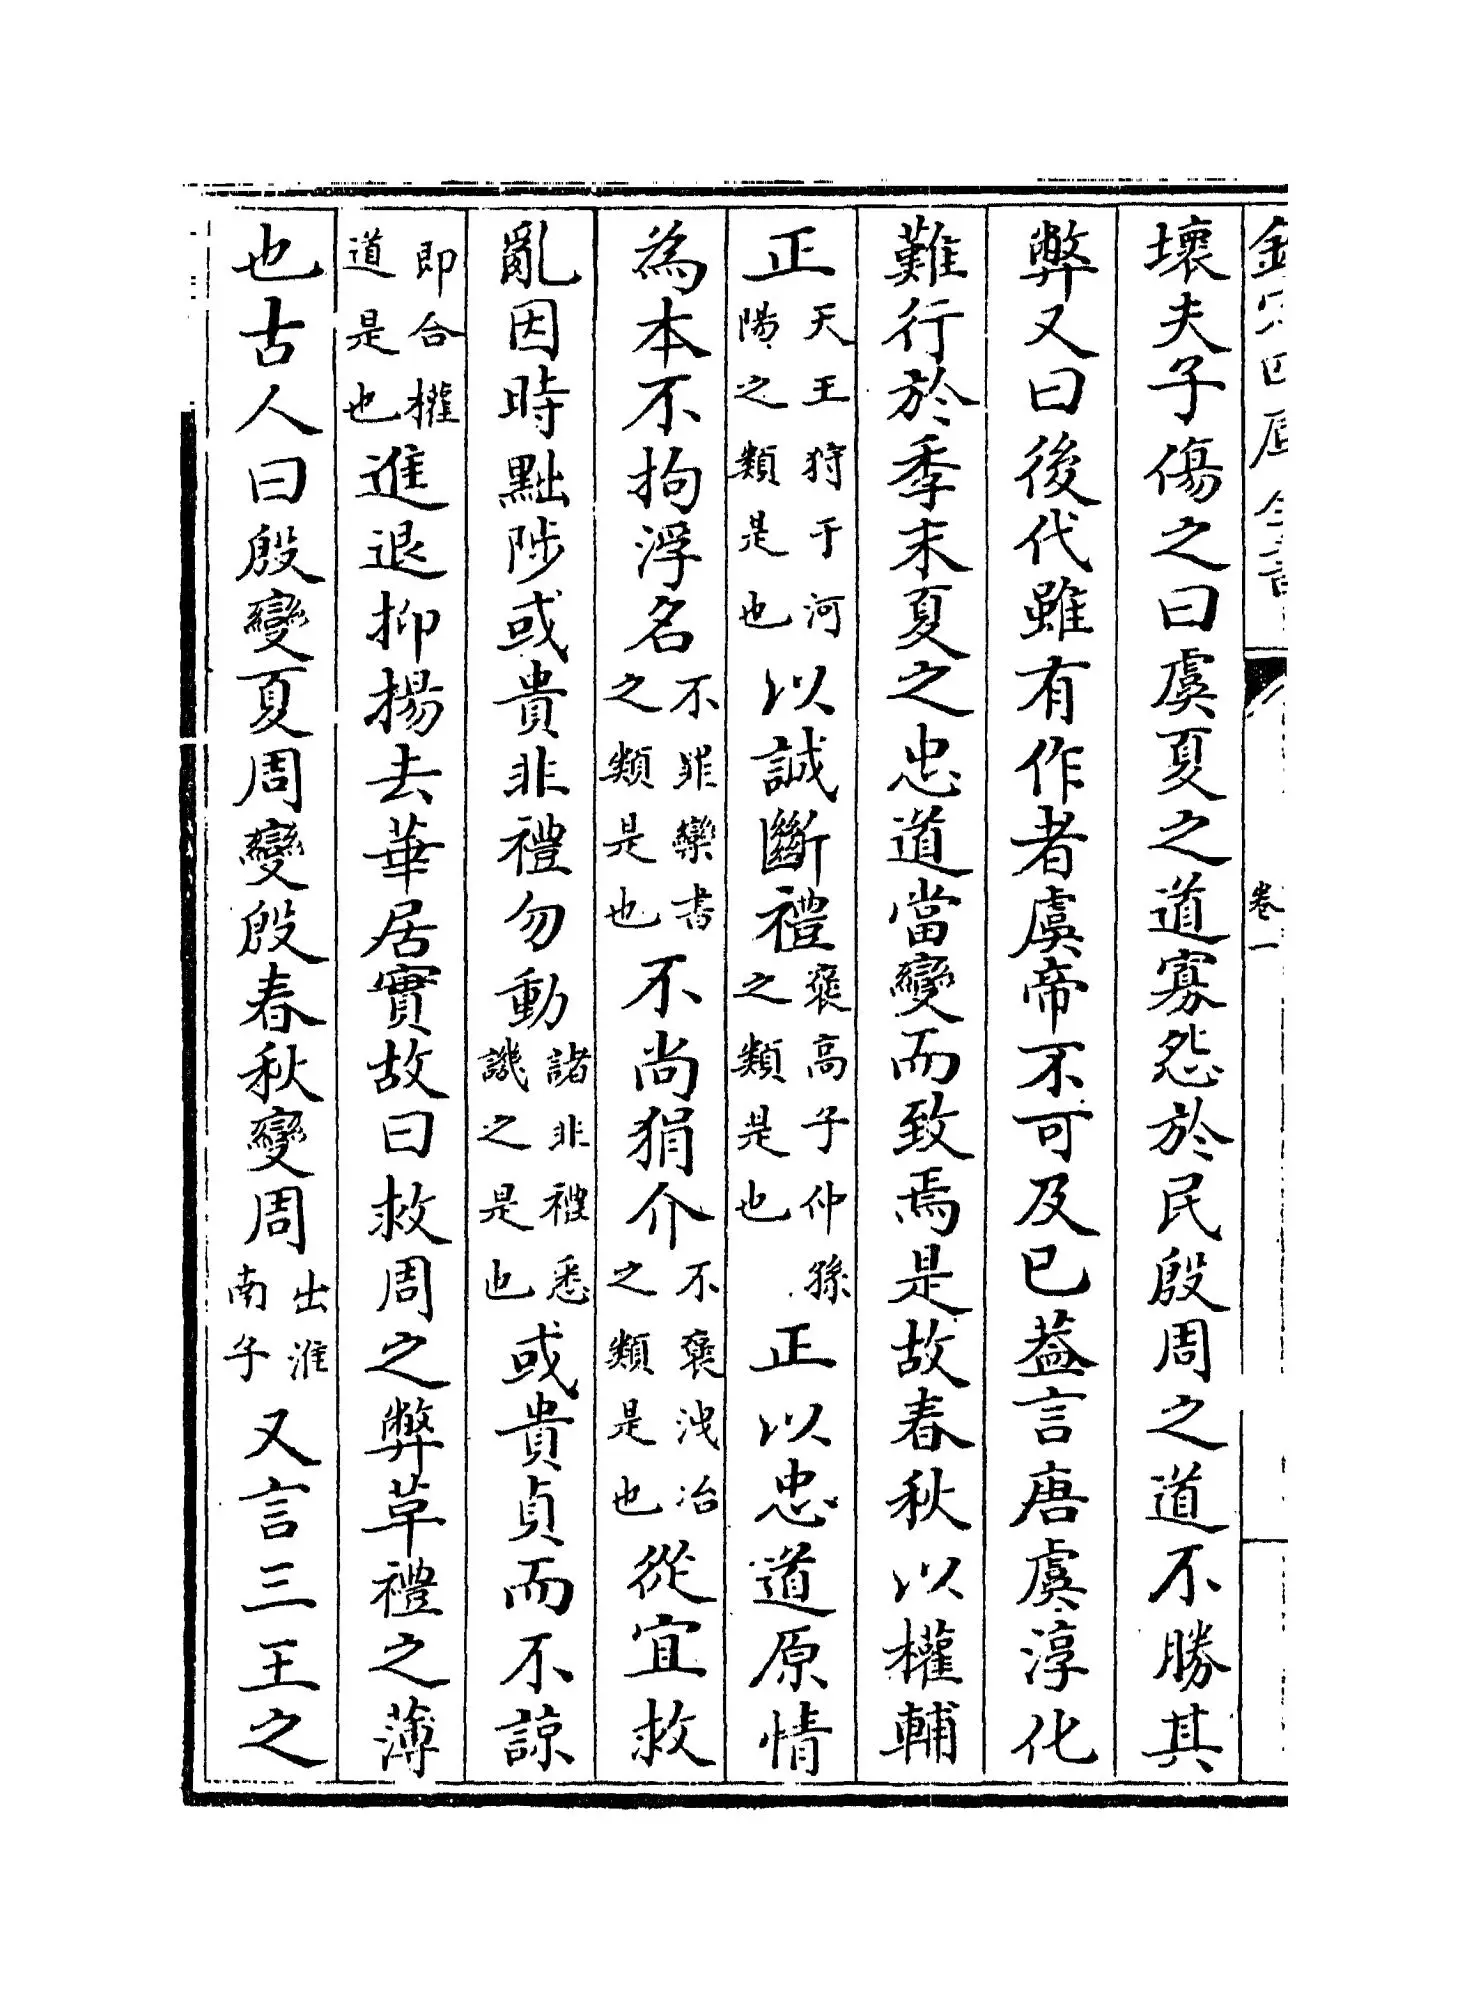 欽定四庫全書
卷一
壞夫子傷之曰虞夏之道寡怨於民殷周之道不勝其
弊又曰後代雖有作者虞帝不可及已葢言唐虞淳化
難行於季末夏之忠道當變而致焉是故春秋以權輔
正天王狩于河陽之類是也以誠斷禮褒高子仲孫之類是也正以忠道原情
為本不拘浮名不罪欒書之類是也不尚狷介不褒洩冶之類是也從宜救
亂因時黜陟或貴非禮勿動諸非禮悉譏之是也或貴貞而不諒
即合權道是也進退抑揚去華居實故曰救周之弊革禮之薄
也古人曰殷變夏周變殷春秋變周出淮南子又言三王之